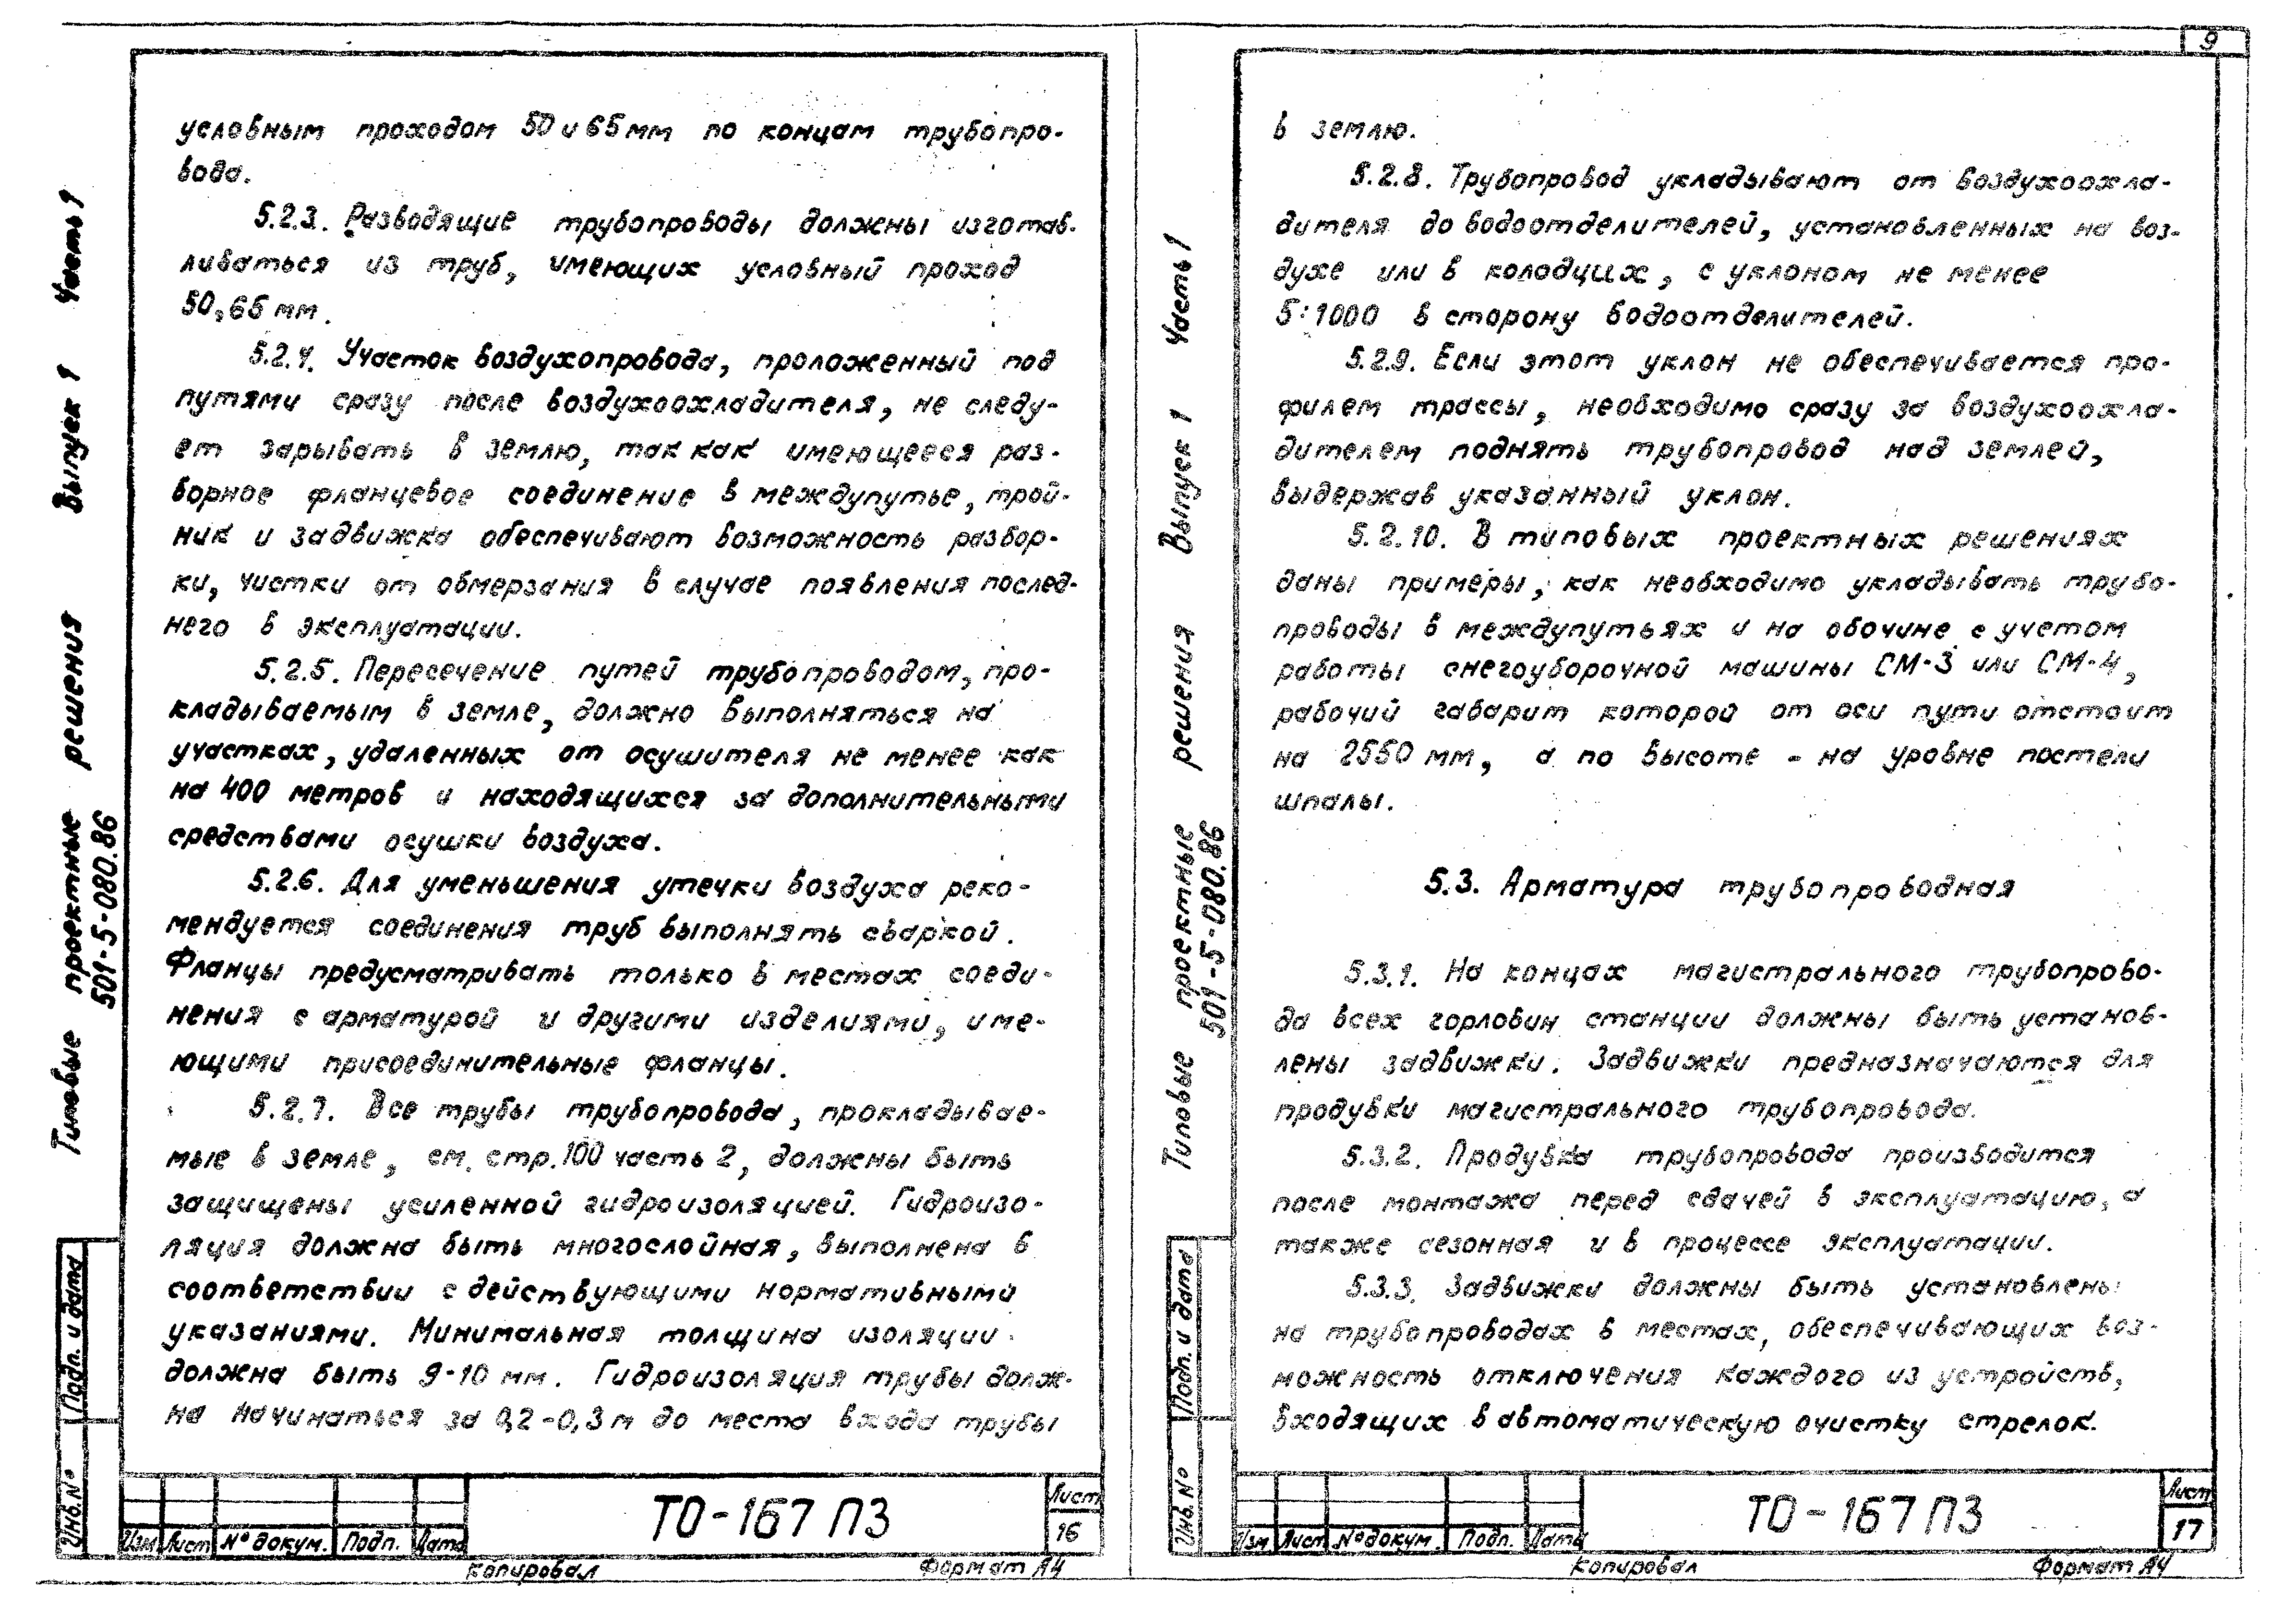 9
условным проходом 50 и 65 мм по концам трубопро-
вода.
5.2.3. Разводящие трубопроводы должны изготав-
ливаться из труб, имеющих условный проход
50, 65 мм.
5.2.4. Участок воздухопровода, проложенный под
путями сразу после воздухоохладителя, не следу-
ет зарывать в землю, так как имеющееся раз-
борное фланцевое соединение в междупутье, трой-
ник и задвижка обеспечивают возможность разбор-
ки, чистки от обмерзания в случае появления послед-
него в эксплуатации.
5.2.5. Пересечение путей трубопроводом, про-
кладываемым в земле, должно выполняться на
участках, удаленных от осушителя не менее как
на 400 метров и находящихся за дополнительными
средствами осушки воздуха.
5.2.6. Для уменьшения утечки воздуха реко-
мендуется соединения труб выполнять сваркой.
Фланцы предусматривать только в местах соеди-
нения с арматурой и другими изделиями, име-
ющими присоединительные фланцы.
5.2.7. Все трубы трубопровода, прокладывае-
мые в земле, см. стр. 100 часть 2, должны быть
защищены усиленной гидроизоляцией. Гидроизо-
ляция должна быть многослойная, выполнена в
соответствии с действующими нормативными
указаниями. Минимальная толщина изоляции
должна быть 9-10 мм. Гидроизоляция трубы долж-
на начинаться за 0,2-0,3 м до места входа трубы
Типовые проектные решения Выпуск 1 Часть 1
501-5-080.86
Подп. и дата
Инв. №
Изм Лист № докум. Подп. Дата
ТО-167 ПЗ
Лист
16
Копировал Формат А4
в землю.
5.2.8. Трубопровод укладывают от воздухоохла-
дителя до водоотделителей, установленных на воз-
духе или в колодцих, с уклоном не менее
5:1000 в сторону водоотделителей.
5.2.9. Если этот уклон не обеспечивается про-
филем трассы, необходимо сразу за воздухоохла-
дителем поднять трубопровод над землей,
выдержав указанный уклон.
5.2.10. В типовых проектных решениях
даны примеры, как необходимо укладывать трубо-
проводы в междупутьях и на обочине с учетом
работы снегоуборочной машины СМ-3 или СМ-4,
рабочий габарит которой от оси пути отстоит
на 2550 мм, а по высоте - на уровне постели
шпалы.
5.3. Арматура трубопроводная
5.3.1. На концах магистрального трубопрово-
да всех горловин станции должны быть установ-
лены задвижки. Задвижки предназначаются для
продувки магистрального трубопровода.
5.3.2. Продувка трубопровода производится
после монтажа перед сдачей в эксплуатацию, а
также сезонная и в процессе эксплуатации.
5.3.3. Задвижки должны быть установлены
на трубопроводах в местах, обеспечивающих воз-
можность отключения каждого из устройств,
входящих в автоматическую очистку стрелок.
Типовые проектные решения Выпуск 1 Часть 1
501-5-080.86
Подп. и дата
Инв. №
Изм. Лист № докум. Подп. Дата
ТО-167 ПЗ
Лист
17
Копировал Формат А4